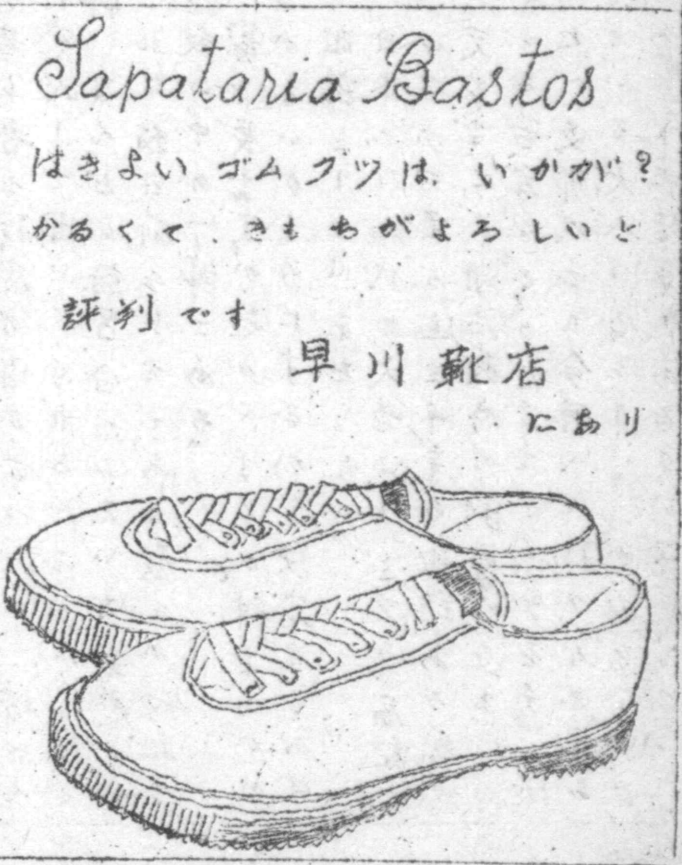 Sapataria Bastos
はきよい ゴムグツは、いかが?
かるくて、きもちがよろしいと
評判です
早川靴店
にあり